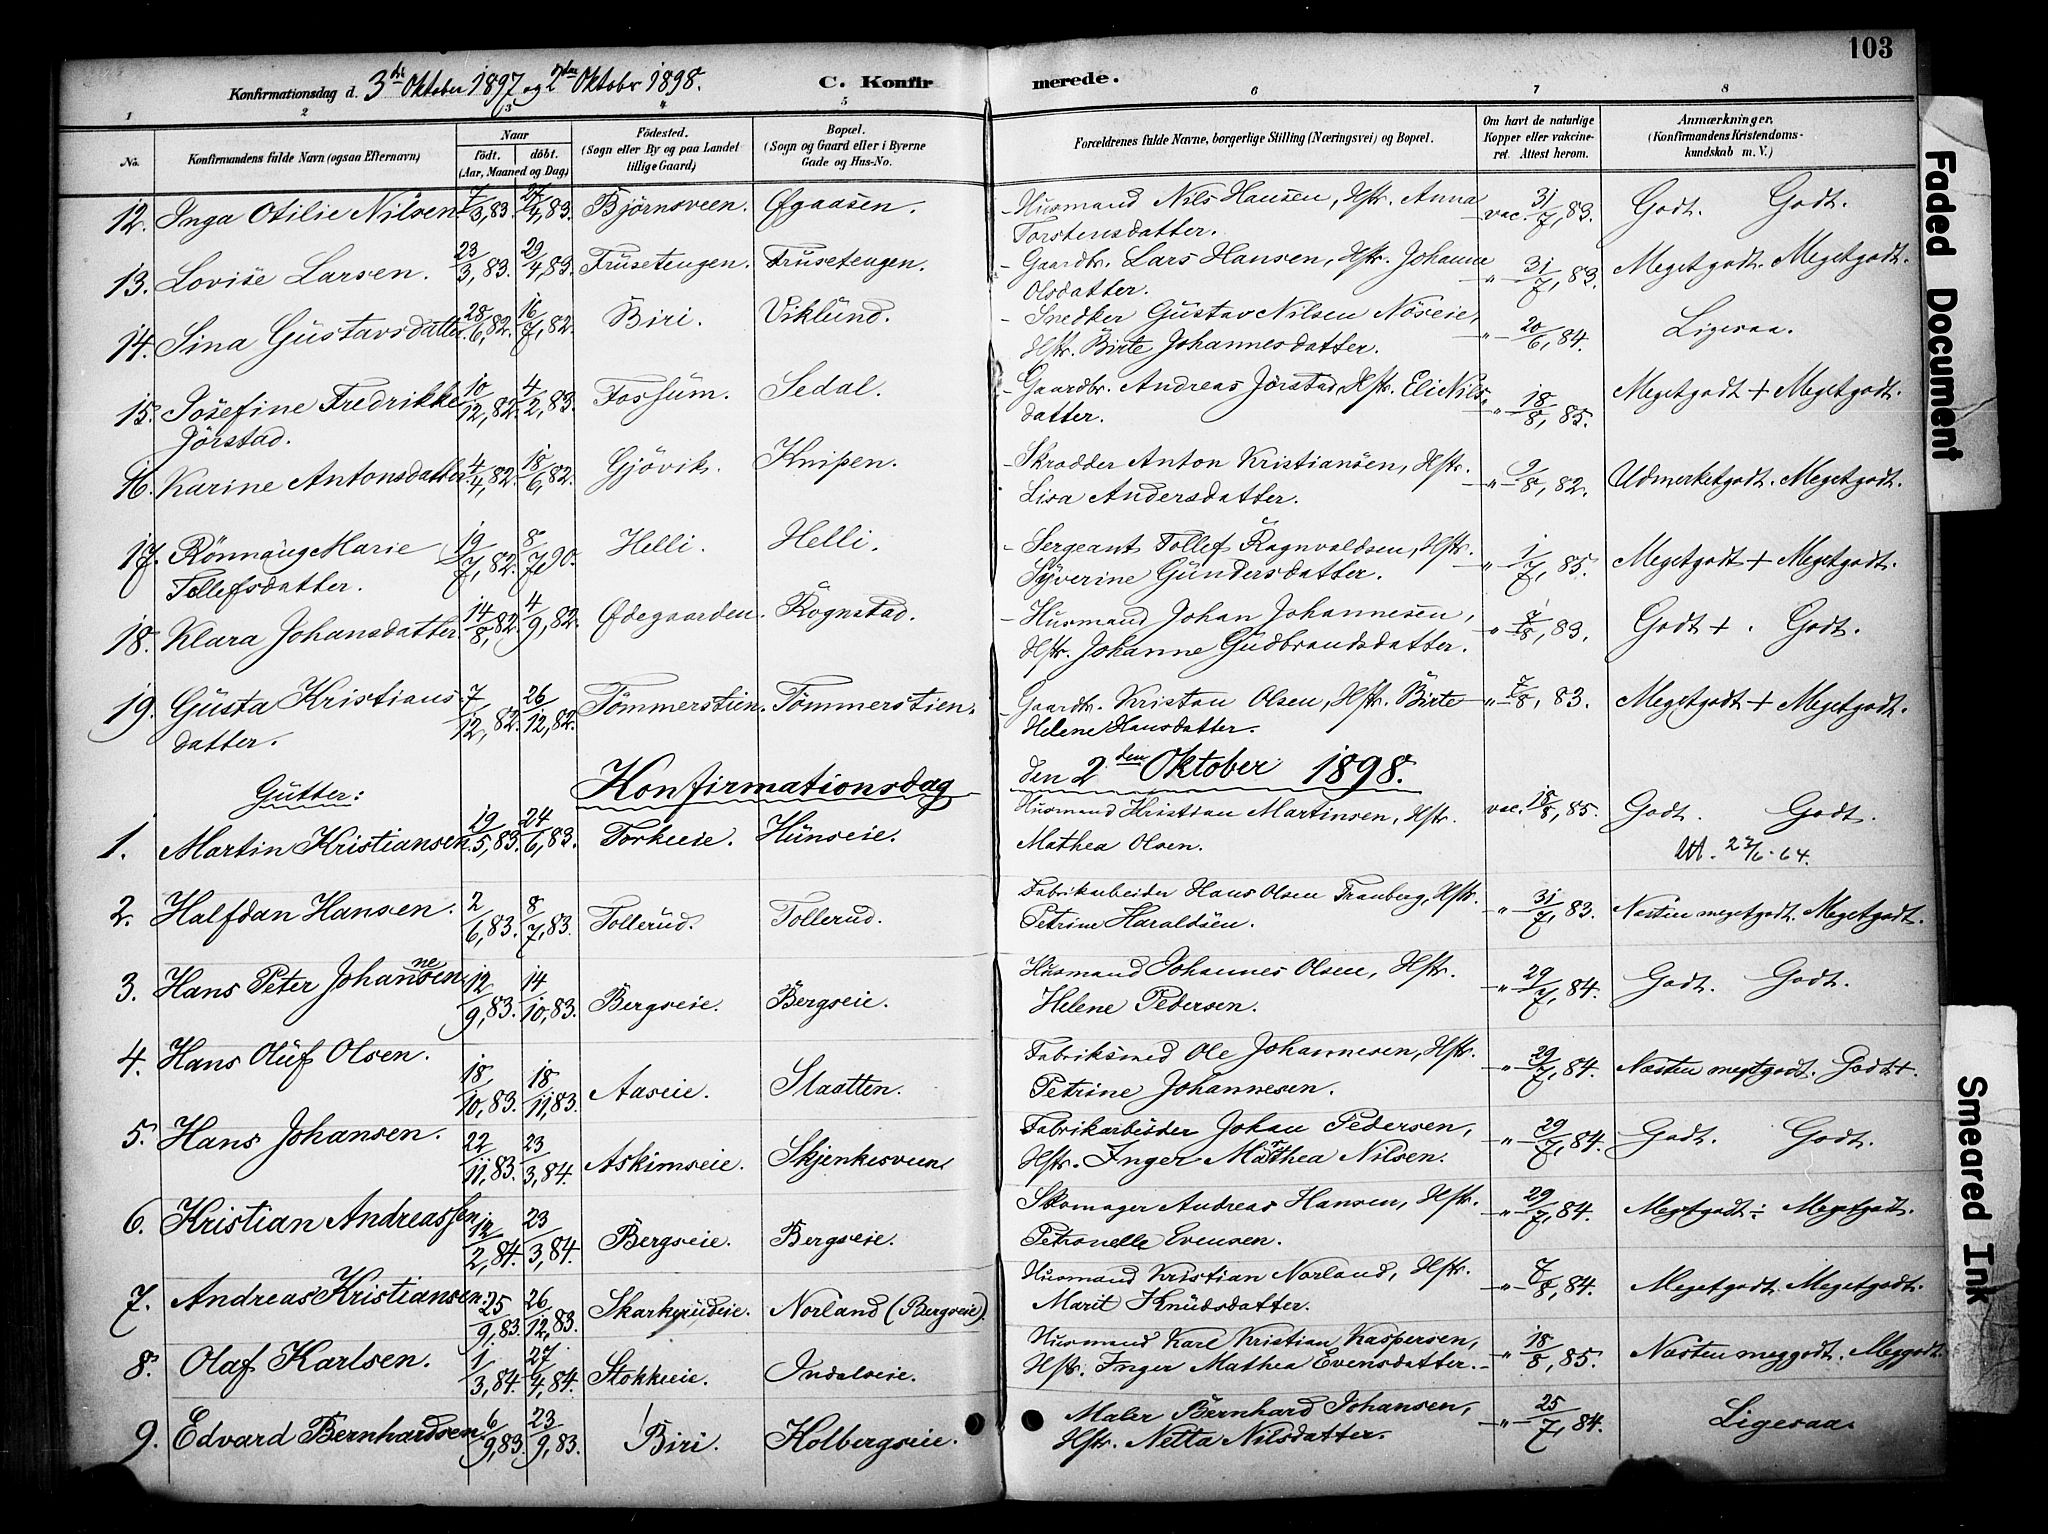 103
Konfirmationsdag d. 3die Oktober 1897 og 2den Oktober 1898. C. Konfirmerede.
1 2 3 4 5 6 7 8
No. Konfirmandens fulde Navn (ogsaa Efternavn) Naar födt. döbt. (Aar, Maaned og Dag) Födested. (Sogn eller By og paa Landet tillige Gaard) Bopæl. (Sogn og Gaard eller i Byerne Gade og Hus-No. Forældrenes fulde Navne, borgerlige Stilling (Næringsvei) og Bopæl. Om havt de naturlige Kopper eller vakcineret. Attest herom. Anmærkninger, (Konfirmandens Kristendomskundskab m. V.)
12. Inga Otilie Nilsen 7/3,83. 27/4,83. Björnsveen. Øfgaasen. Husmand Nils Hansen, Hstr. Anna Torstensdatter. vac. 31/7,83. Godt. Godt.
13. Lovise Larsen. 23/3,83. 29/4,83. Frusetengen. Frusetengen. Gaardbr. Lars Hansen, Hstr. Johanna Olsdatter. -"- 31/7,83. Megetgodt. Megetgodt.
14. Sina Gustavsdatter. 28/6,82. 16/7,82. Biri. Viklund. Snedker Gustav Nilsen Nöseie, Hstr. Birte Johannesdatter. -"- 20/6,84. Ligesaa.
15. Josefine Fredrikke Jörstad. 10/12,82. 4/2,83. Fossum. Sedal. Gaardbr. Andreas Jörstad, Hstr. Eli Nilsdatter. -"- 18/8,85. Megetgodt + Megetgodt.
16. Karine Antonsdatter. 4/4,82. 18/6,82. Gjövik. Knipen. Skrædder Anton Kristiansen, Hstr. Lisa Andersdatter. -"- 9/8,82. Udmerketgodt. Megetgodt.
17. Rönnaug Marie Tollefsdatter. 19/7,82. 8/7,90. Helli. Helli. Sergeant Tollef Ragnvaldsen, Hstr. Syverine Gundersdatter. -"- 1/7,85. Megetgodt + Megetgodt.
18. Klara Johansdatter. 14/8,82. 4/9,82. Ødegaarden. Rognstad. Husmand Johan Johannesen, Hstr. Johanne Gudbrandsdatter. -"- 7/8,83. Godt +. Godt.
19. Gusta Kristiansdatter. 7/12,82. 26/12,82. Tömmerstien. Tömmerstien. Gaardbr. Kristian Olsen, Hstr. Birte Helene Hansdatter. -"- 7/8,83. Megetgodt + Megetgodt.
Gutter: Konfirmationsdag den 2den Oktober 1898.
1. Martin Kristiansen. 19/5,83. 24/6,83. Torkeeie. Hunseie. Husmand Kristian Martinsen, Hstr. Mathea Olsen. vac. 18/8,85. Godt. Godt.
Utt. 23/6-64.
2. Halfdan Hansen. 2/6,83. 8/7,83. Tollerud. Tollerud. Fabrikarbeider Hans Olsen Tranberg, Hstr. Petrine Haraldsen. -"- 31/7,83. Næsten megetgodt. Megetgodt.
3. Hans Peter Johannesen 12/9,83. 14/10,83. Bergseie. Bergseie. Husmand Johannes Olsen, Hstr. Helene Pedersen. -"- 29/7,84. Godt. Godt.
4. Hans Oluf Olsen. 18/10,83. 18/11,83. Aaseie. Slaatten. Fabriksmed Ole Johannesen, Hstr. Petrine Johannesen. -"- 29/7,84. Næsten megtgodt. Godt+.
5. Hans Johansen. 22/11,83. 23/3,84. Askimseie. Skjenkesveen. Fabrikarbeider Johan Pedersen, Hstr. Inger Marthea Nilsen. -"- 29/7,84. Godt. Godt.
6. Kristian Andreassen 12/2,84. 23/3,84. Bergseie. Bergseie. Skomager Andreas Hansen, Hstr. Petronelle Evensen. -"- 29/7,84. Megetgodt ÷ Megetgodt.
7. Andreas Kristiansen. 25/9,83. 26/12,83. Skarkerudeie. Norland (Bergseie). Husmand Kristian Norland, Hstr. Marit Knudsdatter. -"- 7/8,84. Megetgodt. Megetgodt.
8. Olaf Karlsen. 1/3,84. 27/4,84. Stokkeeie. Indalseie. Husmand Karl Kristian Kaspersen, Hstr. Inger Mathea Evensdatter. -"- 18/8,85. Næsten meggodt. Meggodt.
9. Edvard Bernhardsen. 6/9,83. 23/9,83. Biri. Holbergseie. Maler Bernhard Johansen, Hstr. Netta Nilsdatter. -"- 25/7,84. Ligesaa.
Faded Document
Smeared Ink